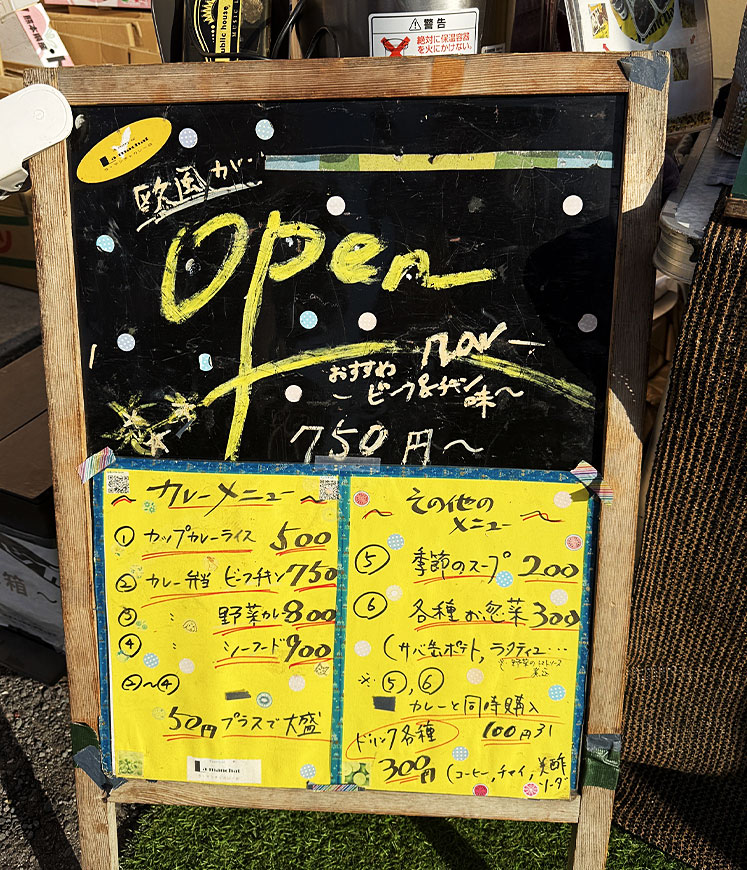 ublic house
MUSIC
警告
絶対に保温容器
を火にかけない。
La manchat
欧風カレー
open
nav
おすすめ
ビーフ&チキン
味〜
750円〜
〜カレーメニュー〜
① カップカレーライス 500
② カレー弁当 ビーフチキン 750
③ 〃 野菜カレー 800
④ 〃 シーフード 900
②〜④
50円プラスで大盛
La manchat
〜その他のメニュー〜
⑤ 季節のスープ 200
⑥ 各種お惣菜 300
(サバ缶ポテト, ラタティユ…
※ ⑤, ⑥
カレーと同時購入
100円引
ドリンク各種
300円 (コーヒー, チャイ, 美酢ソーダ
箱